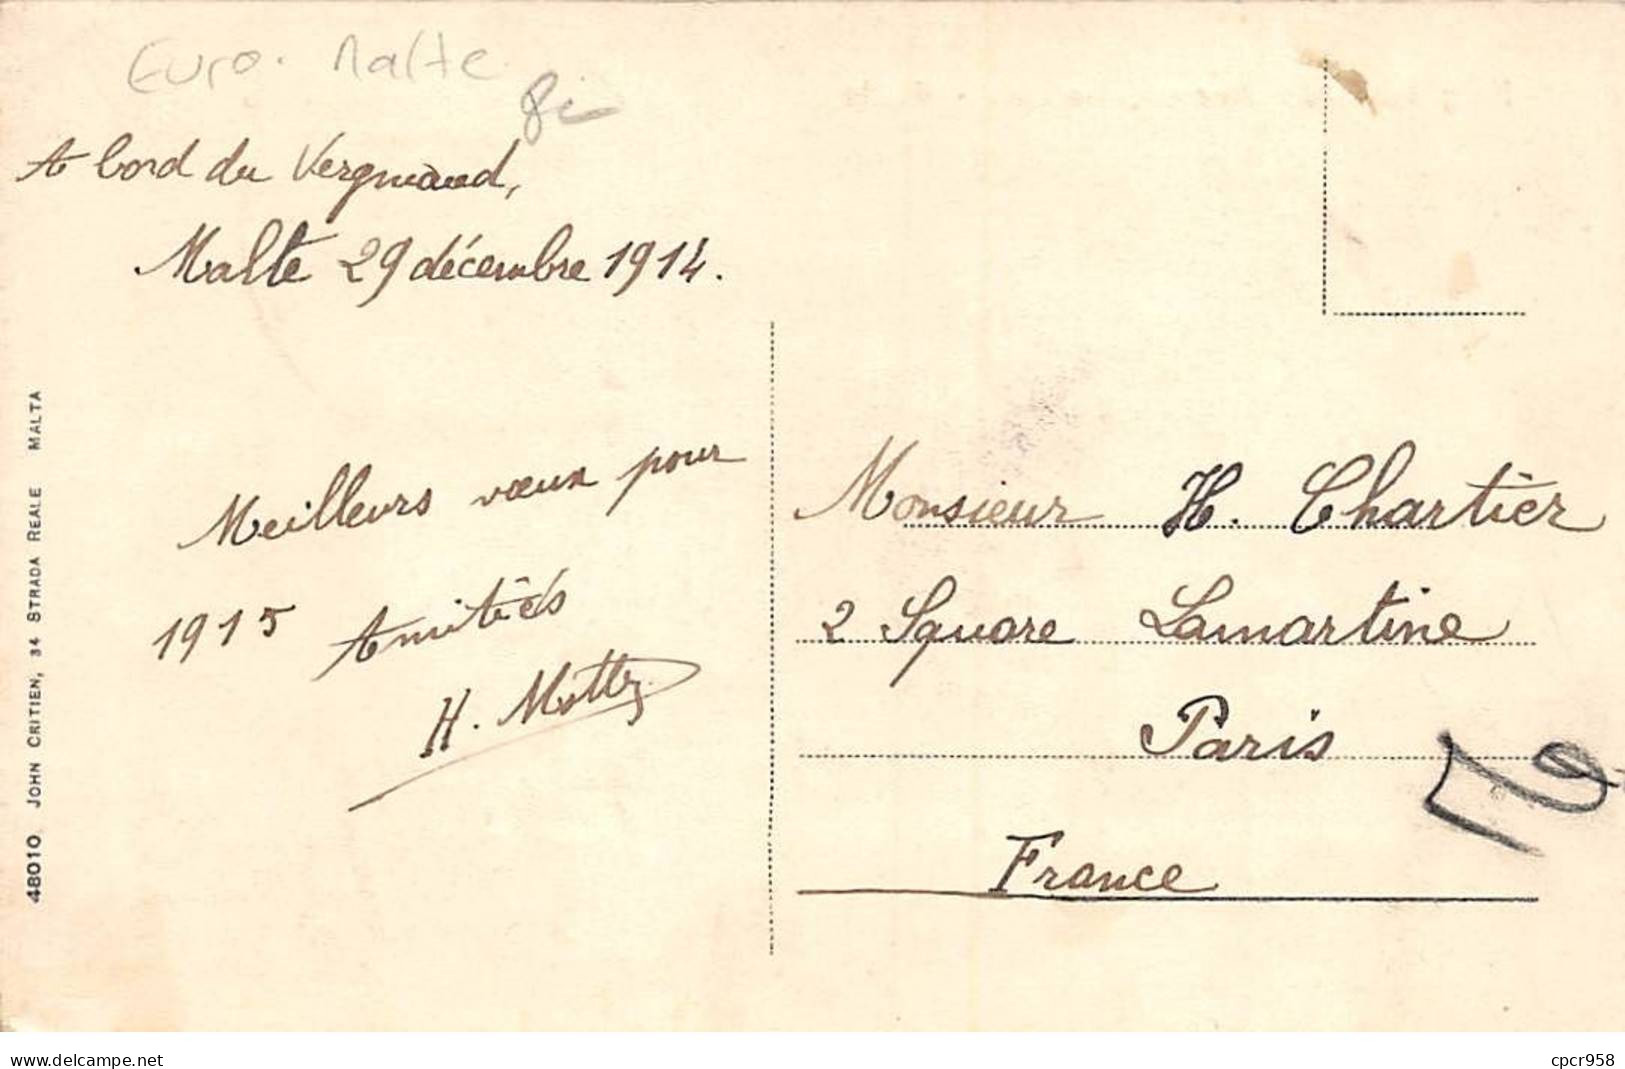 Euro. Malte
A bord du Vergniaud,
Malte 29 décembre 1914.
Meilleurs vœux pour
1915 Amitiés
H.
Monsieur H. Chartier
2 Square Lamartine
Paris
France
48010 JOHN CRITIEN, 34 STRADA REALE MALTA
www.delcampe.net
cpcr958